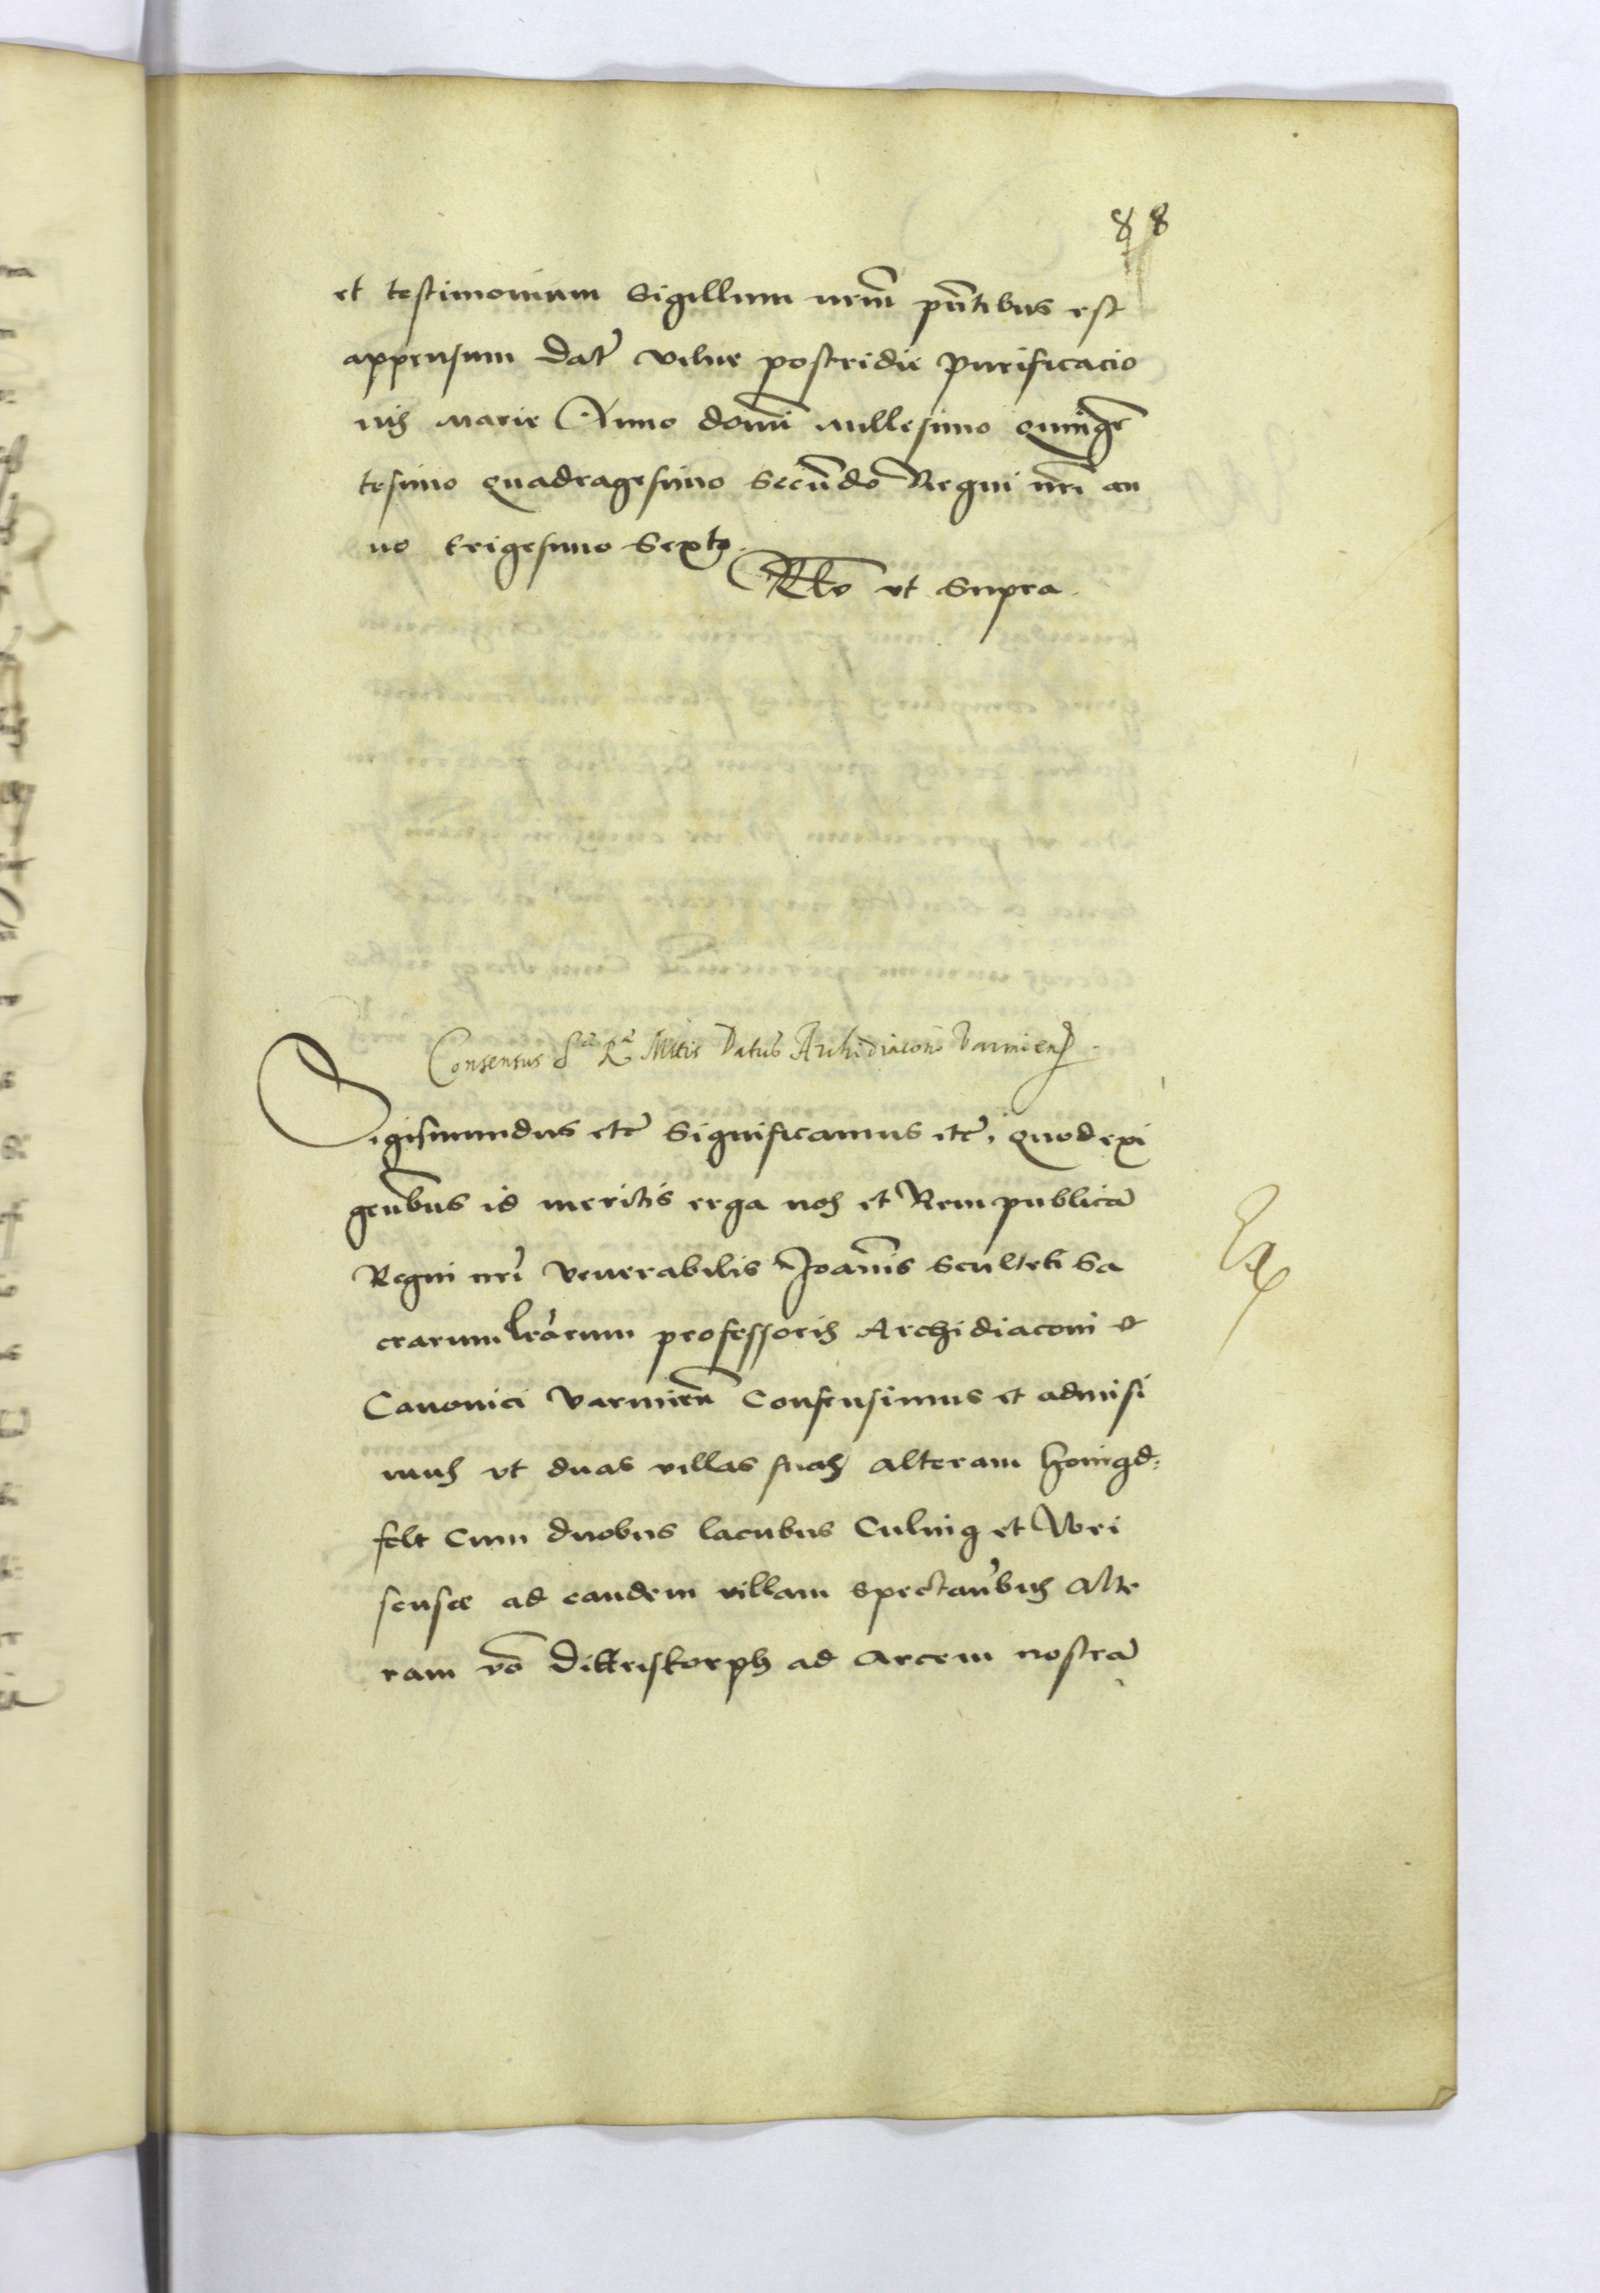 88
et testimonium Sigillum nrm̃ pñtibus est
appensum Dat̃ Vilne postridie Purificacio
nis Marie Anno domi̅ Millesimo Quinge̅
tesimo Quadragesimo Secu̅do Regni nri̅ an
no trigesimo Sexto.
Rlo̅ ut Supra.
Consensus S. R. Mtis Datus Archidiacono Varmien̅.
Sigismundus etc̃ Significamus etc̃, Quod exi
gen̅bus id meritis erga nos et Rempublica̅
Regni nri̅ venerabilis Joan̅is Sculteti Sa
crarum lr̅arum professoris Archidiaconi et
Canonici Varmien̅ Consensimus et admisi
mus ut duas villas suas alteram Honigd=
felt Cum duobus lacubus Culmig et Wri
sensee ad eandem villam Spectan̅bus Alte
ram vo̅ Dittristorph ad arcem nostra̅